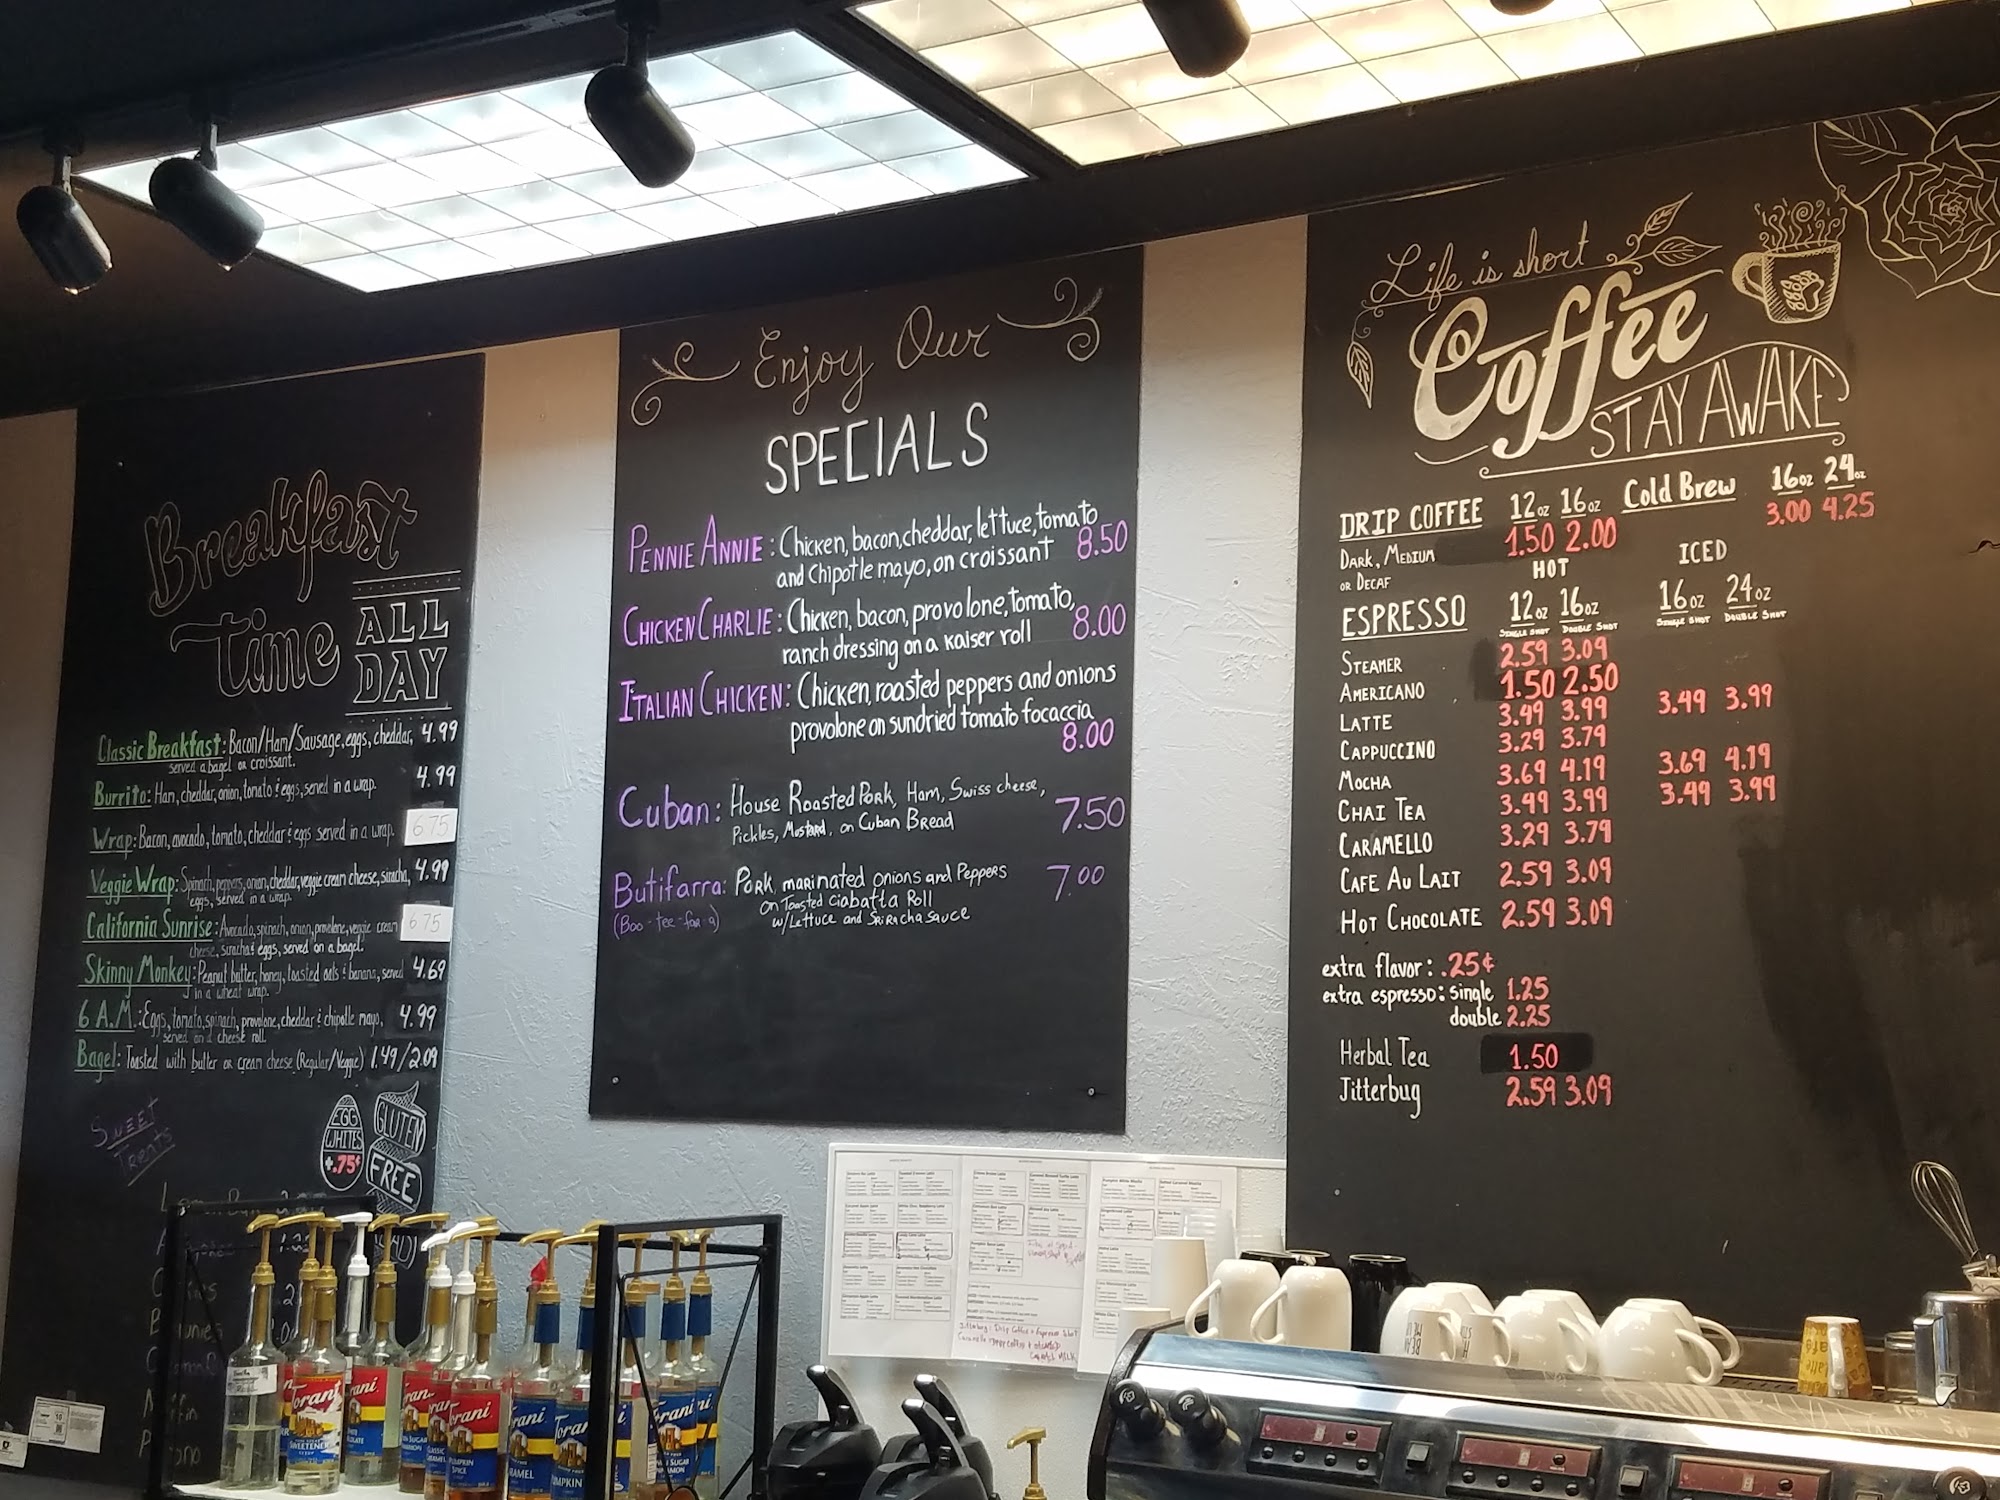 Breakfast
Time
ALL
DAY
Classic Breakfast: Bacon/Ham/Sausage, eggs, cheddar, 4.99
served a bagel or croissant.
Burrito: Ham, cheddar, onion, tomato & eggs, served in a wrap. 4.99
Wrap: Bacon, avocado, tomato, cheddar & eggs served in a wrap. 6.75
Veggie Wrap: Spinach, peppers, onion, cheddar, veggie cream cheese, siracha, 4.99
eggs, served in a wrap.
California Sunrise: Avocado, spinach, onion, provolone, veggie cream 6.75
cheese, siracha & eggs, served on a bagel.
Skinny Monkey: Peanut butter, honey, toasted oats & banana, served 4.69
in a wheat wrap.
6 A.M.: Eggs, tomato, spinach, provolone, cheddar & chipotle mayo, 4.99
served on a cheese roll.
Bagel: Toasted with butter or cream cheese (Regular/Veggie) 1.49/2.09
Sweet
Treats
EGG
WHITES
+.75¢
GLUTEN
FREE
Enjoy Our
SPECIALS
PENNIE ANNIE: Chicken, bacon, cheddar, lettuce, tomato
and Chipotle mayo, on croissant 8.50
CHICKEN CHARLIE: Chicken, bacon, provolone, tomato,
ranch dressing on a kaiser roll 8.00
ITALIAN CHICKEN: Chicken, roasted peppers and onions
provolone on sundried tomato focaccia
8.00
Cuban: House Roasted Pork, Ham, Swiss cheese,
Pickles, Mustard, on Cuban Bread 7.50
Butifarra: Pork, marinated onions and Peppers 7.00
(Boo-tee-far a) on Toasted ciabatta Roll
w/Lettuce and Sriracha sauce
Life is short
Coffee
STAY AWAKE
DRIP COFFEE 12oz 16oz Cold Brew 16oz 24oz
1.50 2.00 3.00 4.25
DARK, MEDIUM
OR DECAF
HOT ICED
ESPRESSO 12oz 16oz 16oz 24oz
SINGLE SHOT DOUBLE SHOT SINGLE SHOT DOUBLE SHOT
STEAMER 2.59 3.09
AMERICANO 1.50 2.50
LATTE 3.49 3.99 3.49 3.99
CAPPUCCINO 3.29 3.79
MOCHA 3.69 4.19 3.69 4.19
CHAI TEA 3.49 3.99 3.49 3.99
CARAMELLO 3.29 3.79
CAFE AU LAIT 2.59 3.09
HOT CHOCOLATE 2.59 3.09
extra flavor: .25¢
extra espresso: single 1.25
double 2.25
Herbal Tea 1.50
Jitterbug 2.59 3.09
Torani
SWEETENER
Torani
PUMPKIN
SPICE